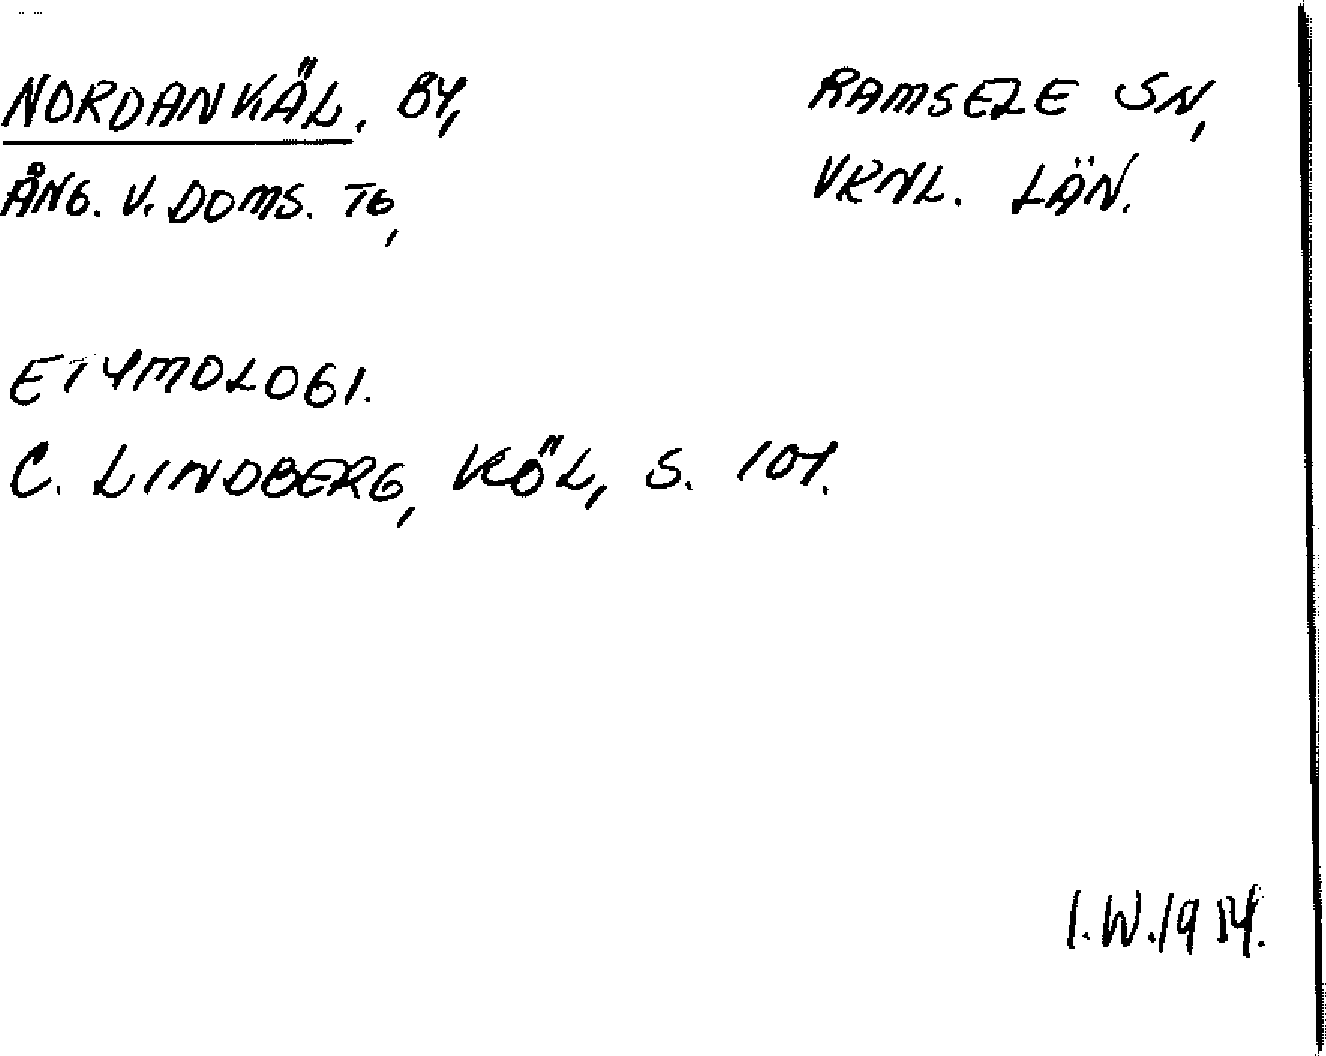 NORDANKÄL. BY, RAMSELE SN,
ÅNG. V. DOMS. TG, VRNL. LÄN.
ETYMOLOGI.
C. LINDBERG, KÖL, S. 107.
I.W.1984.